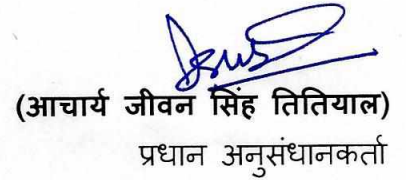 (आचार्य जीवन सिंह तितियाल)
प्रधान अनुसंधानकर्ता